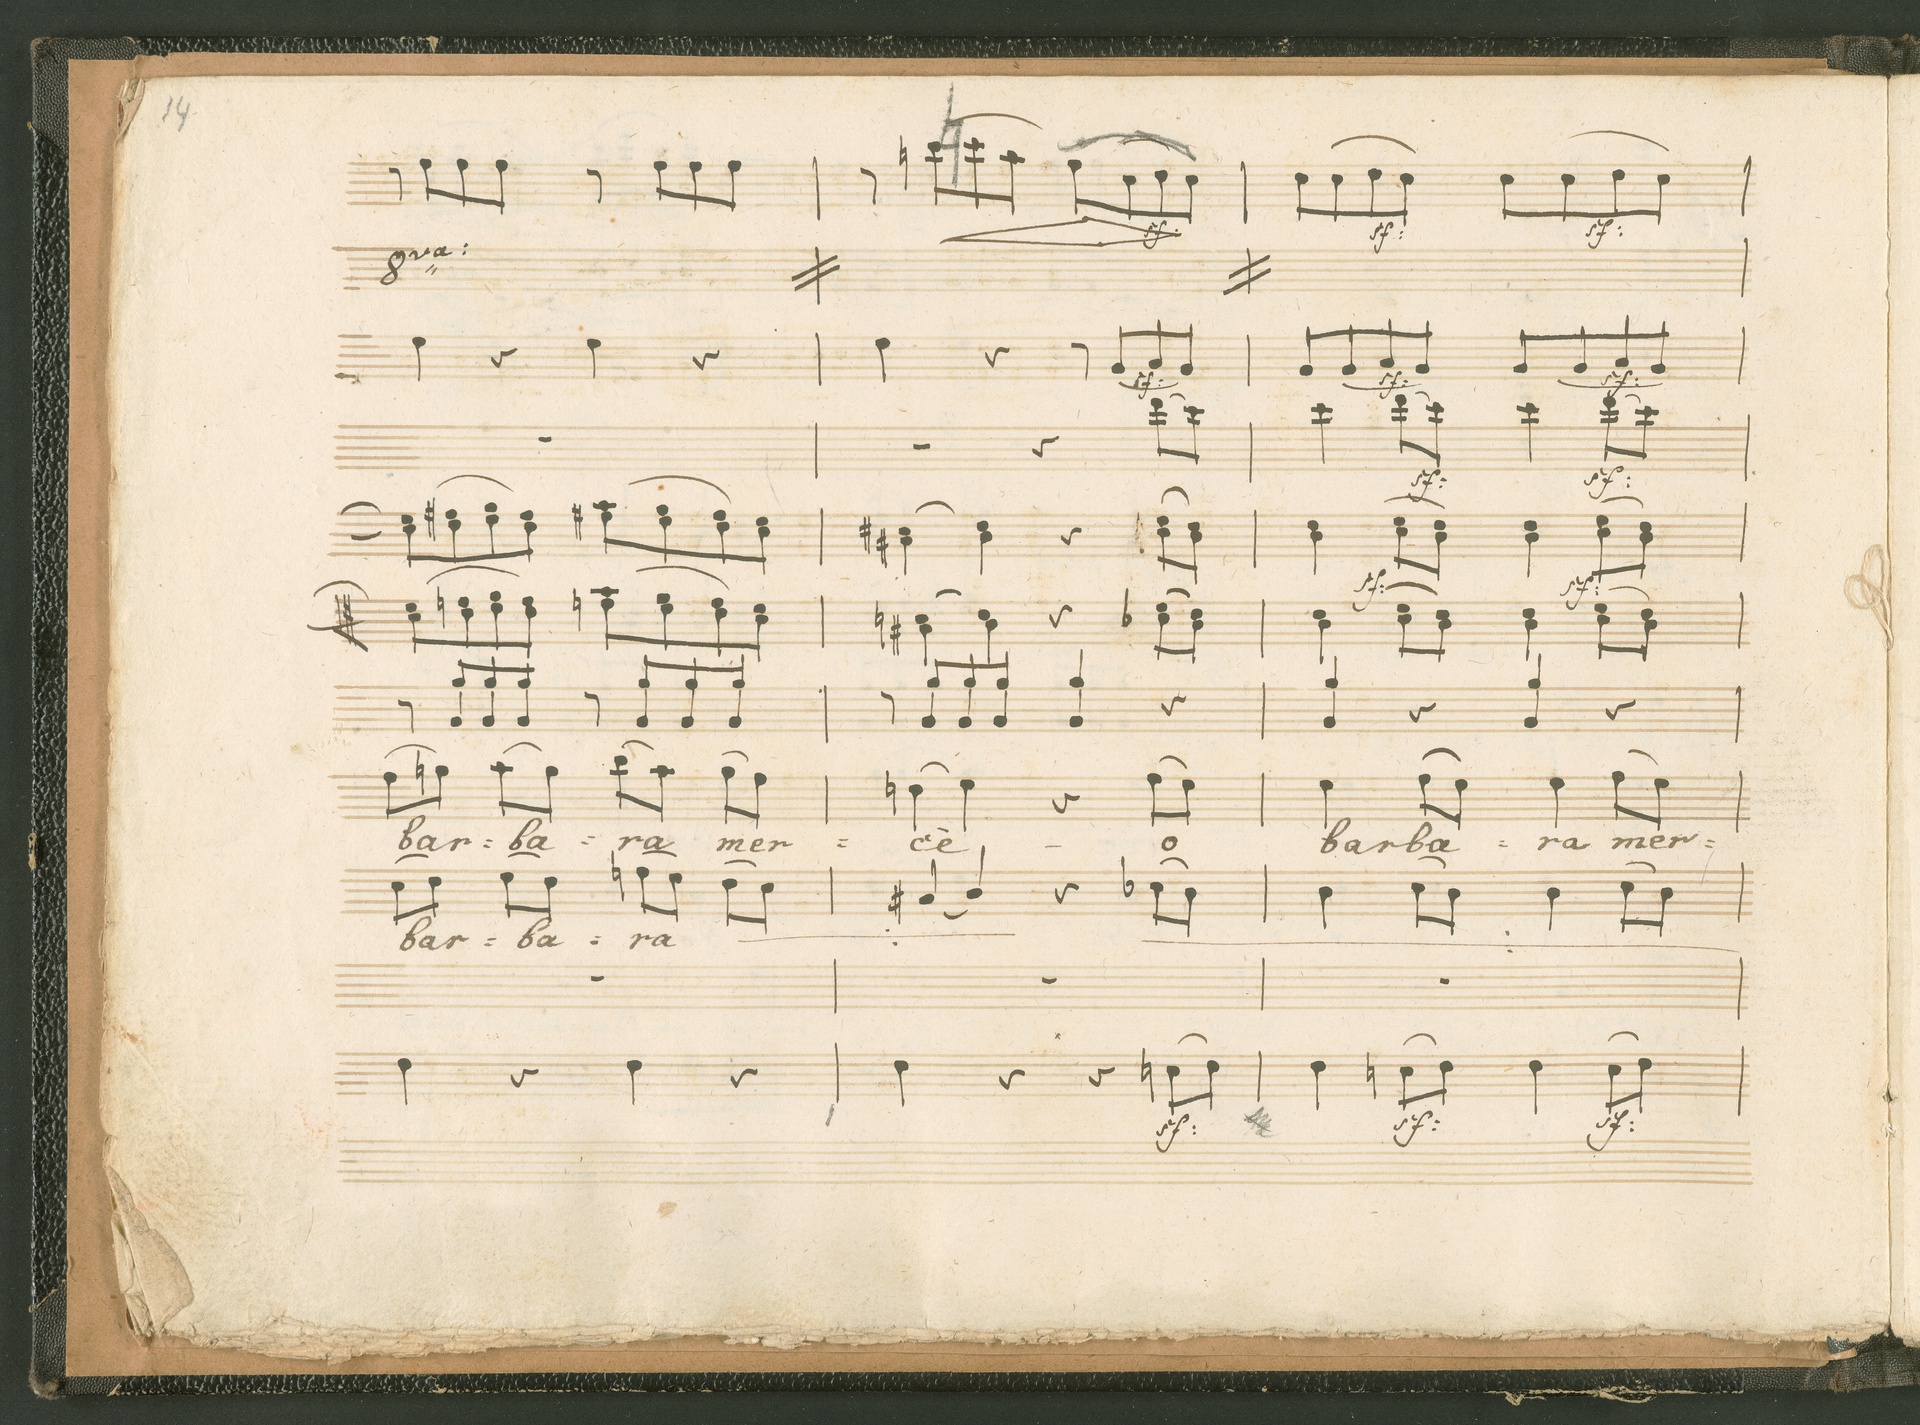 14
4
sf: sf: sf:
8va:
sf: sf: sf:
sf: sf:
sf: sf:
bar = ba = ra mer = cè - o barba = ra mer =
bar = ba = ra
sf: sf: sf: